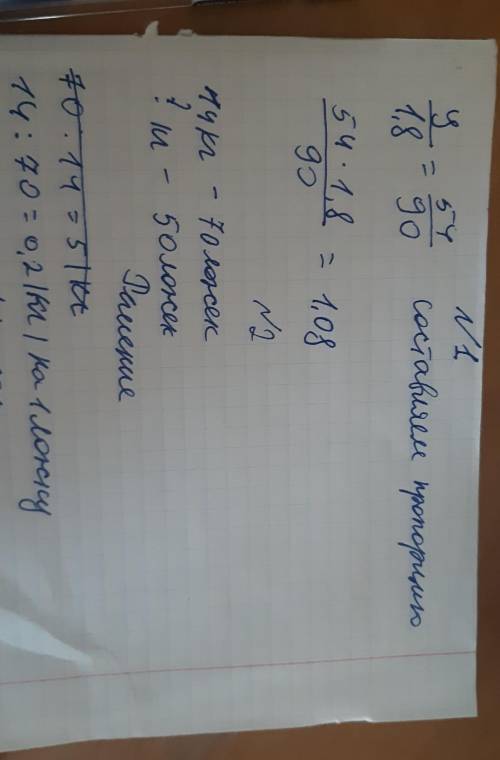 №1
у/1,8 = 54/90 составляем пропорцию
54 · 1,8 / 90 = 1,08
№2
14кг – 70ложек
? кг – 50ложек
Решение
70 · 14 = 5 |кг
14 : 70 = 0,2 |кг| на 1 ложку